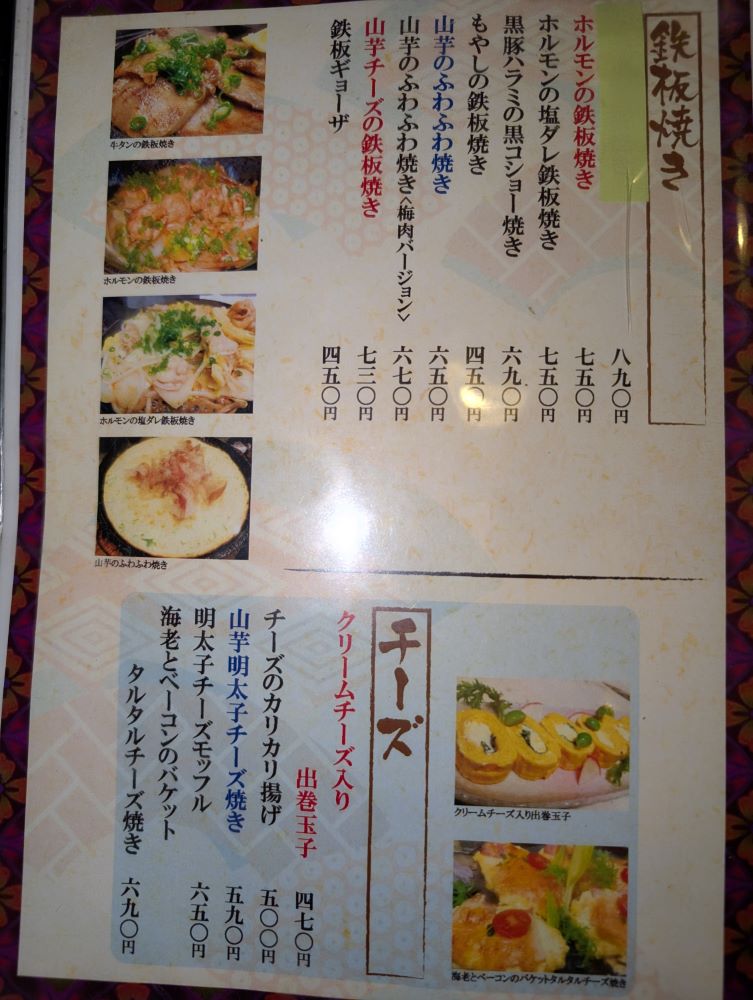 鉄板焼き
八九〇円
ホルモンの鉄板焼き 七五〇円
ホルモンの塩ダレ鉄板焼き 七五〇円
黒豚ハラミの黒コショー焼き 六九〇円
もやしの鉄板焼き 四五〇円
山芋のふわふわ焼き 六五〇円
山芋のふわふわ焼き〈梅肉バージョン〉 六七〇円
山芋チーズの鉄板焼き 七三〇円
鉄板ギョーザ 四五〇円
牛タンの鉄板焼き
ホルモンの鉄板焼き
ホルモンの塩ダレ鉄板焼き
山芋のふわふわ焼き
クリームチーズ入り出巻玉子
海老とベーコンのバケットタルタルチーズ焼き
チーズ
クリームチーズ入り
出巻玉子 四七〇円
チーズのカリカリ揚げ 五〇〇円
山芋明太子チーズ焼き 五九〇円
明太子チーズモッフル 六五〇円
海老とベーコンのバケット
タルタルチーズ焼き 六九〇円